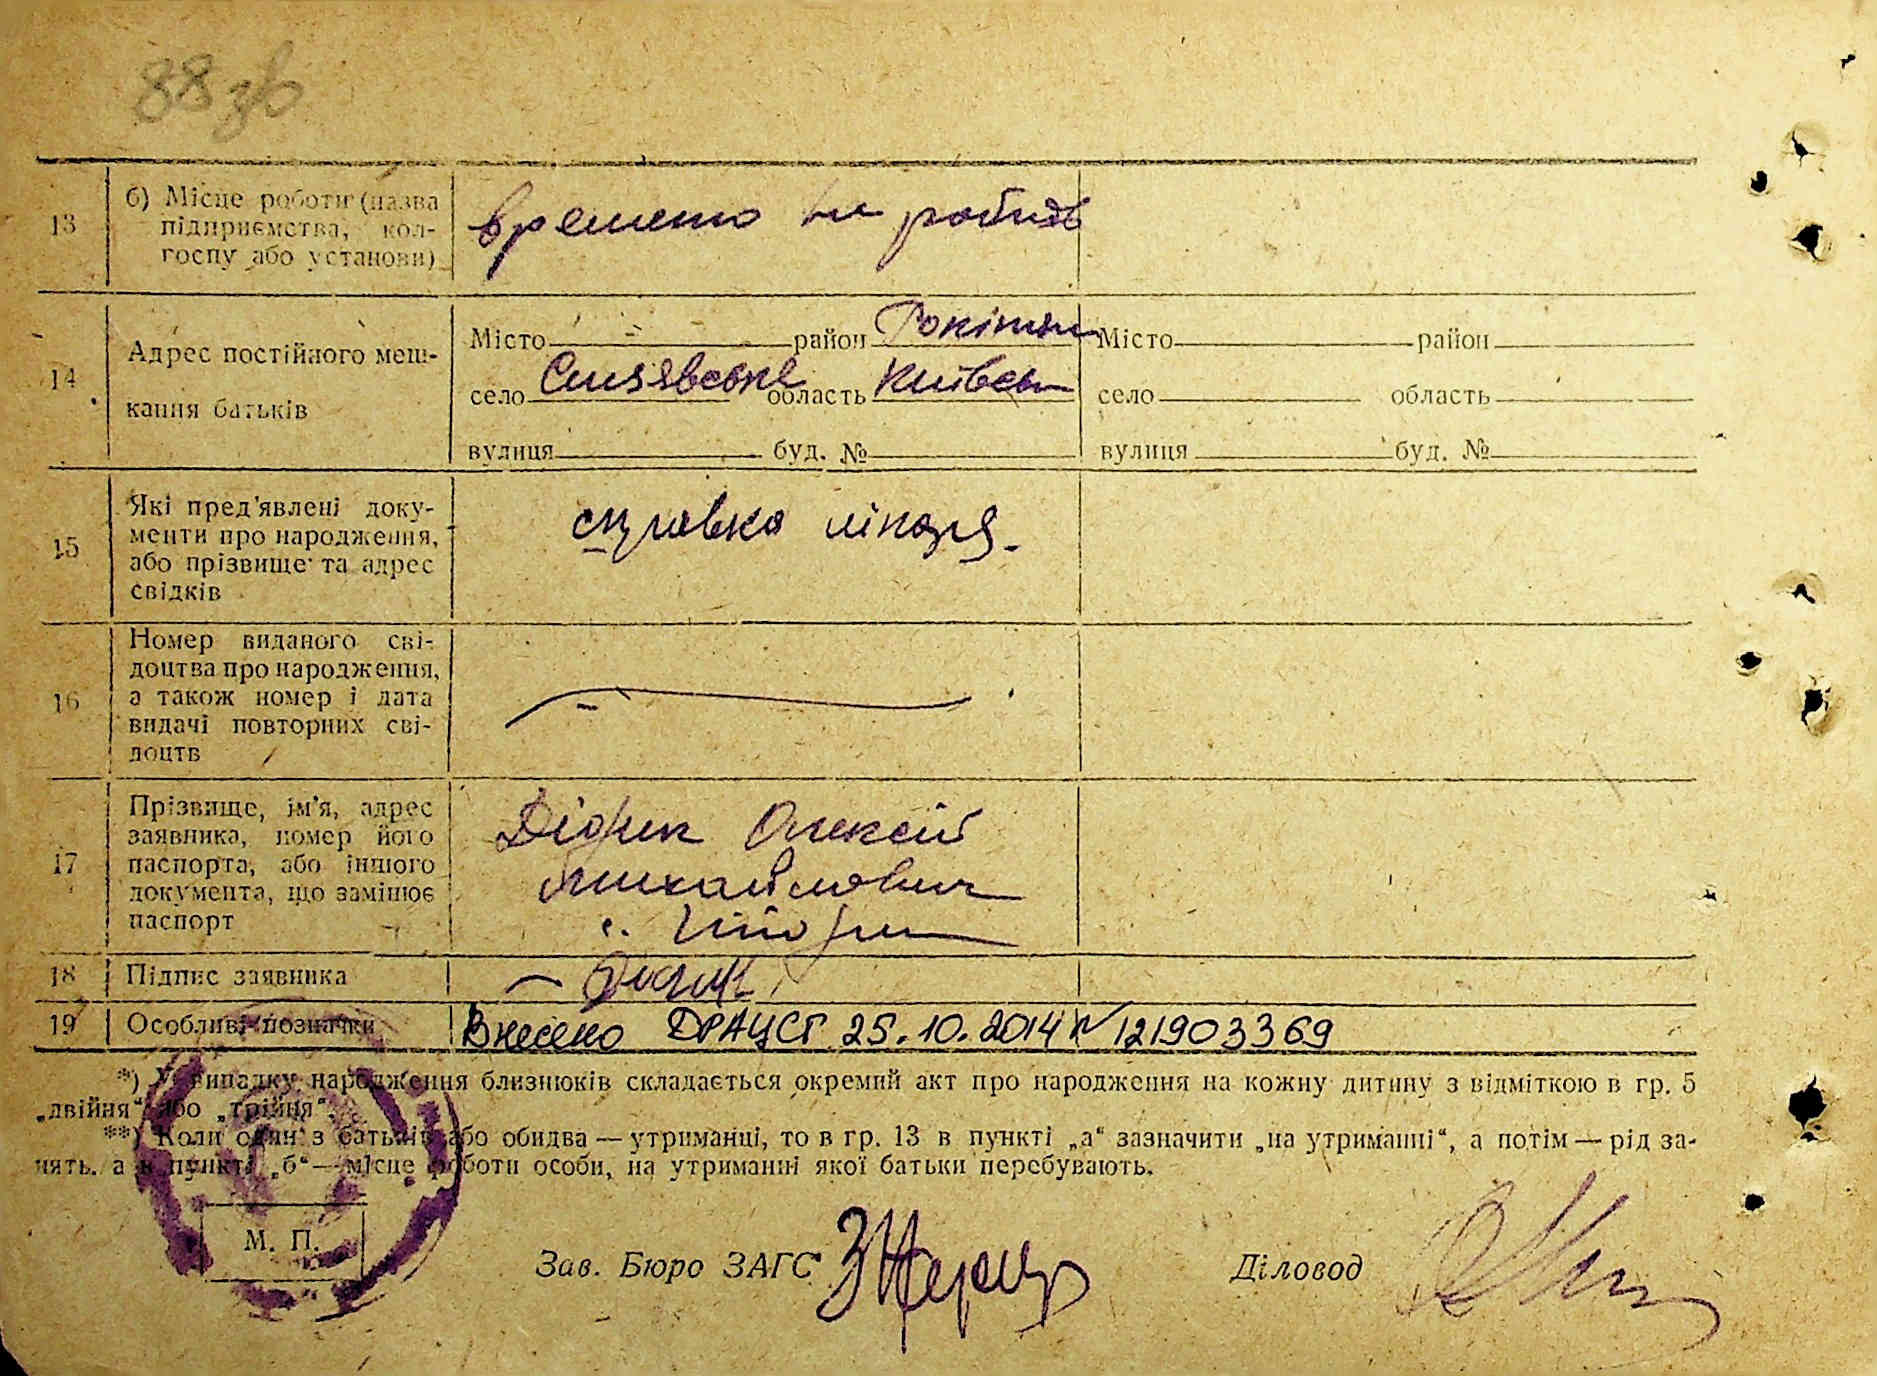 88 зв
13 б) Місце роботи (назва
підприємства, кол-
госпу або установи)
временно не робить
14 Адрес постійного меш-
кання батьків
Місто район Рокітян
село область Київськ
вулиця буд. №
Місто район
село область
вулиця буд. №
15 Які пред'явлені доку-
менти про народження,
або прізвище та адрес
свідків
справка лікаря.
16 Номер виданого сві-
доцтва про народження,
а також номер і дата
видачі повторних сві-
доцтв
17 Прізвище, ім'я, адрес
заявника, номер його
паспорта, або іншого
документа, що замінює
паспорт
Дідик Олексій
Михайлович
с.
18 Підпис заявника
19 Особливі позначки
Внесено ДРАЦСГ 25.10.2014 № 121903369
*) У випадку народження близнюків складається окремий акт про народження на кожну дитину з відміткою в гр. 5
„двійня“ або „трійня“.
**) Коли один з батьків або обидва — утриманці, то в гр. 13 в пункті „а“ зазначити „на утриманні“, а потім — рід за-
нять. а в пункті „б“ — місце роботи особи, на утриманні якої батьки перебувають.
М. П.
Зав. Бюро ЗАГС
Діловод